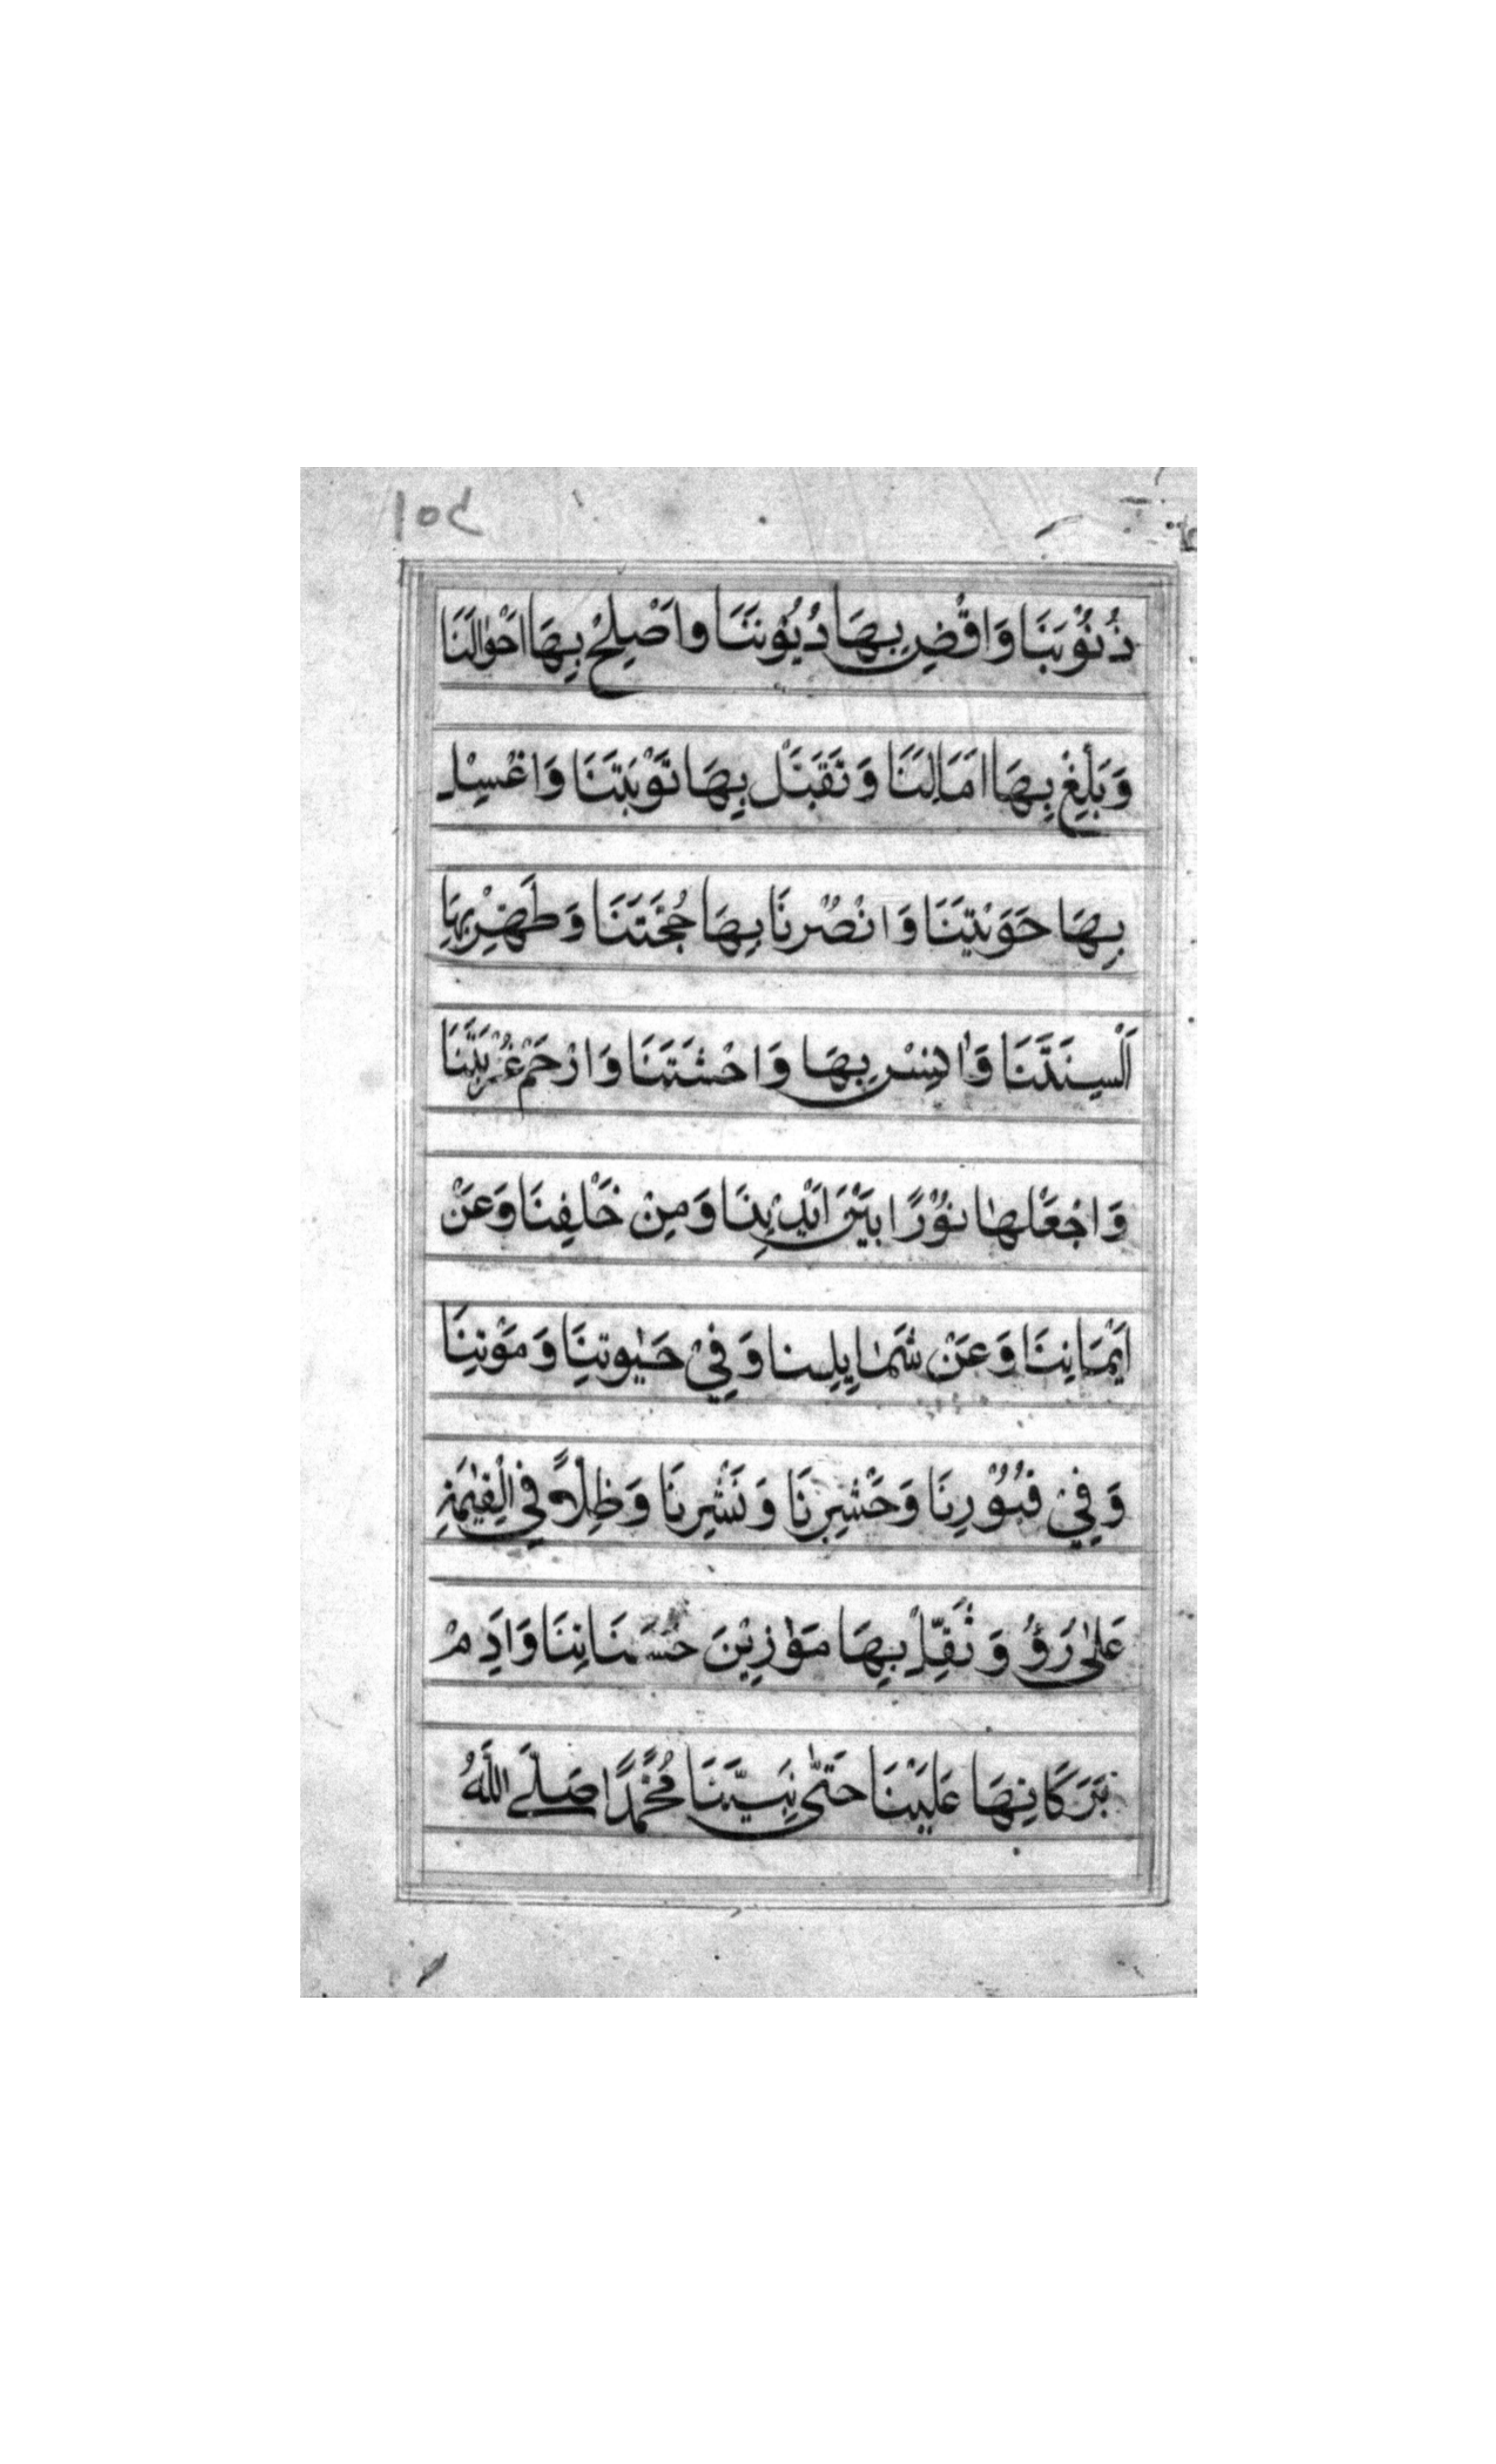 ١٥٤
ذُنُوْبَنَا وَاقْضِ بِهَا دُيُوْنَنَا وَاَصْلِحْ بِهَا اَحْوَالَنَا
وَبَلِّغْ بِهَا اٰمَالَنَا وَتَقَبَّلْ بِهَا تَوْبَتَنَا وَاغْسِلْ
بِهَا حَوْبَتَنَا وَانْصُرْنَا بِهَا حُجَّتَنَا وَطَهِّرْ بِهَا
اَلْسِنَتَنَا وَاٰنِسْ بِهَا وَاحْشَتَنَا وَارْحَمْ غُرْبَتَنَا
وَاجْعَلْهَا نُوْرًا بَيْنَ اَيْدِيْنَا وَمِنْ خَلْفِنَا وَعَنْ
اَيْمَانِنَا وَعَنْ شَمَايِلِنَا وَفِيْ حَيٰوتِنَا وَمَوْتِنَا
وَفِيْ قُبُوْرِنَا وَحَشْرِنَا وَنَشْرِنَا وَظِلًّا فِي الْقِيٰمَةِ
عَلٰى رُؤُ وَثَقِّلْ بِهَا مَوٰزِيْنَ حَسَنَاتِنَا وَاَدِمْ
بَرَكَاتِهَا عَلَيْنَا حَتّٰى نَبِيَّنَا مُحَمَّدًا صَلَّى اللّٰهُ